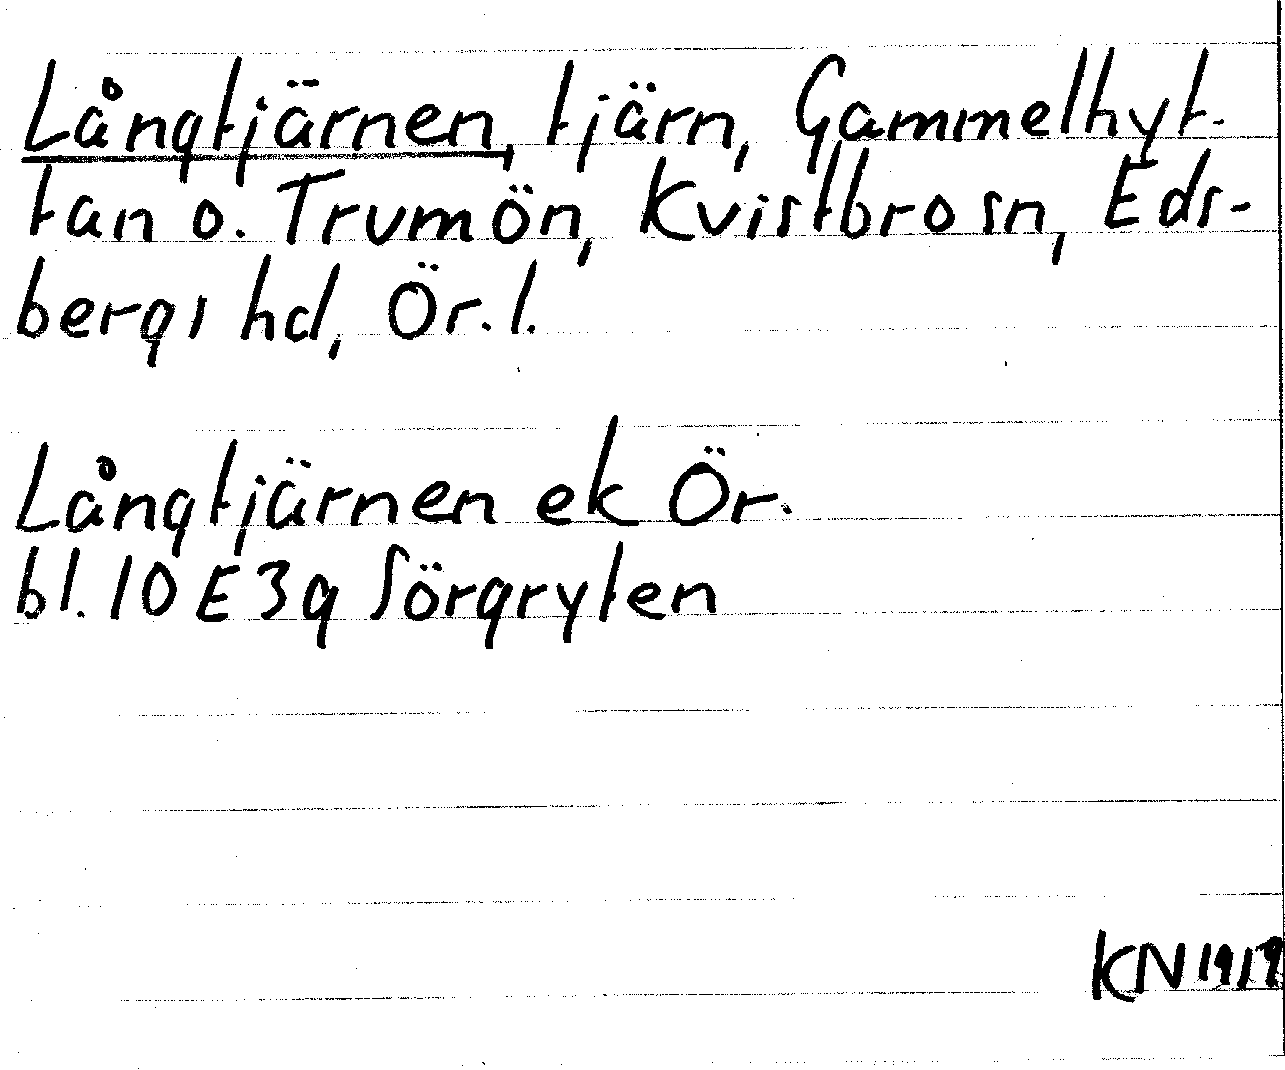 Långtjärnen, tjärn, Gammelhyt-
tan o. Trumön, Kvistbro sn, Eds-
bergs hd, Ör. l.
Långtjärnen ek Ör.
bl. 10 E 3g Sörgryten
KN 1919